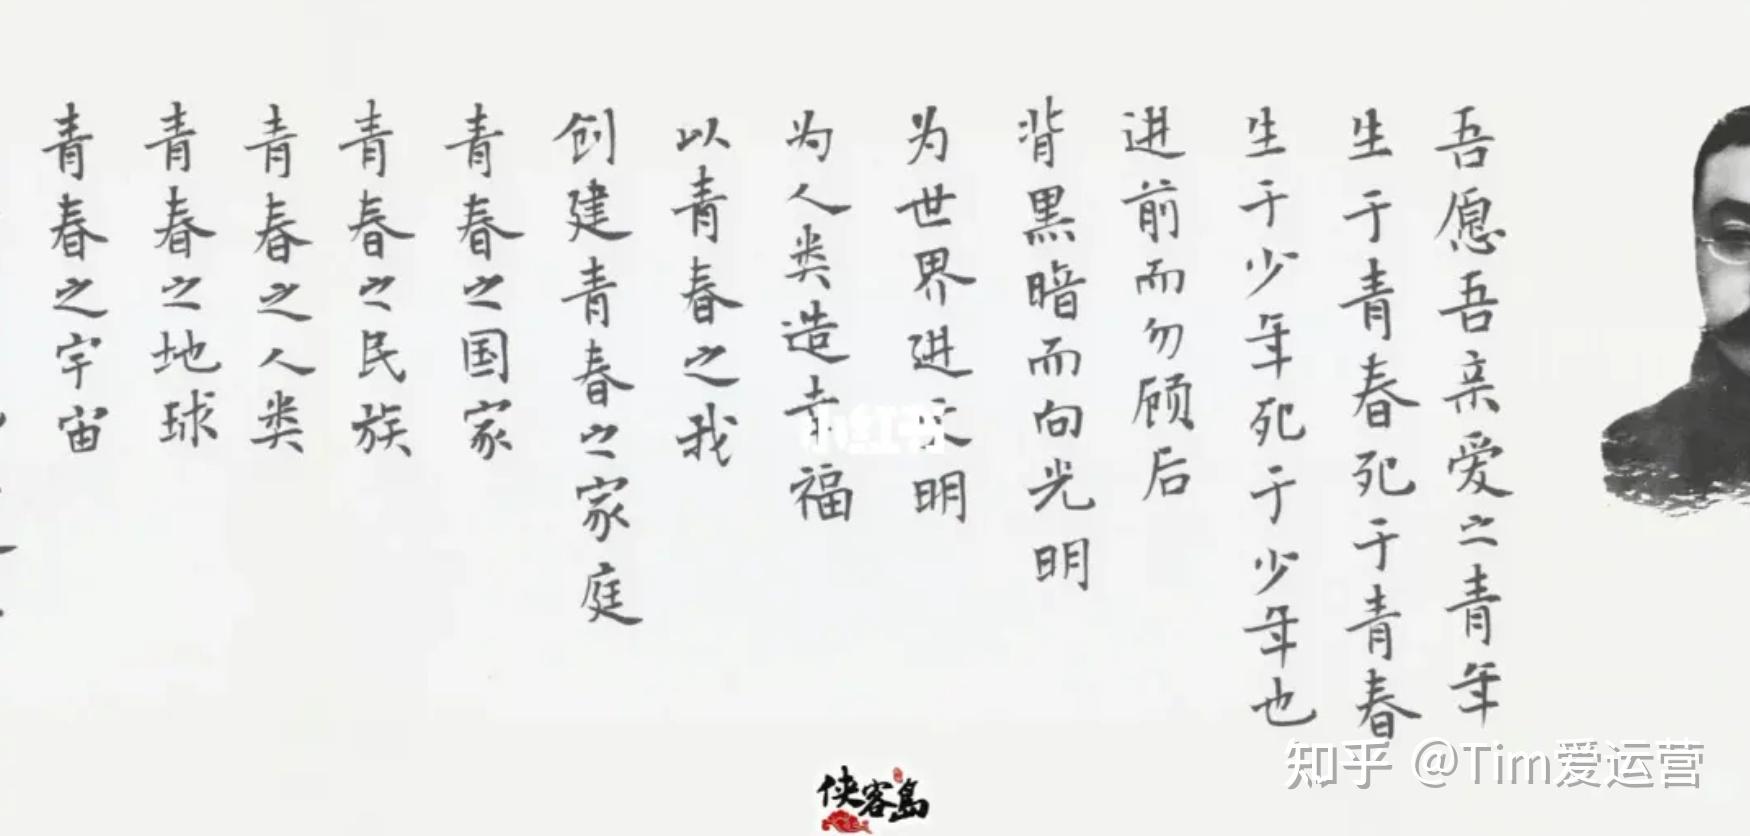 吾愿吾亲爱之青年
生于青春死于青春
生于少年死于少年也
进前而勿顾后
背黑暗而向光明
为世界进文明
为人类造幸福
以青春之我
创建青春之家庭
青春之国家
青春之民族
青春之人类
青春之地球
青春之宇宙
小红书
侠客岛
知乎 @Tim爱运营